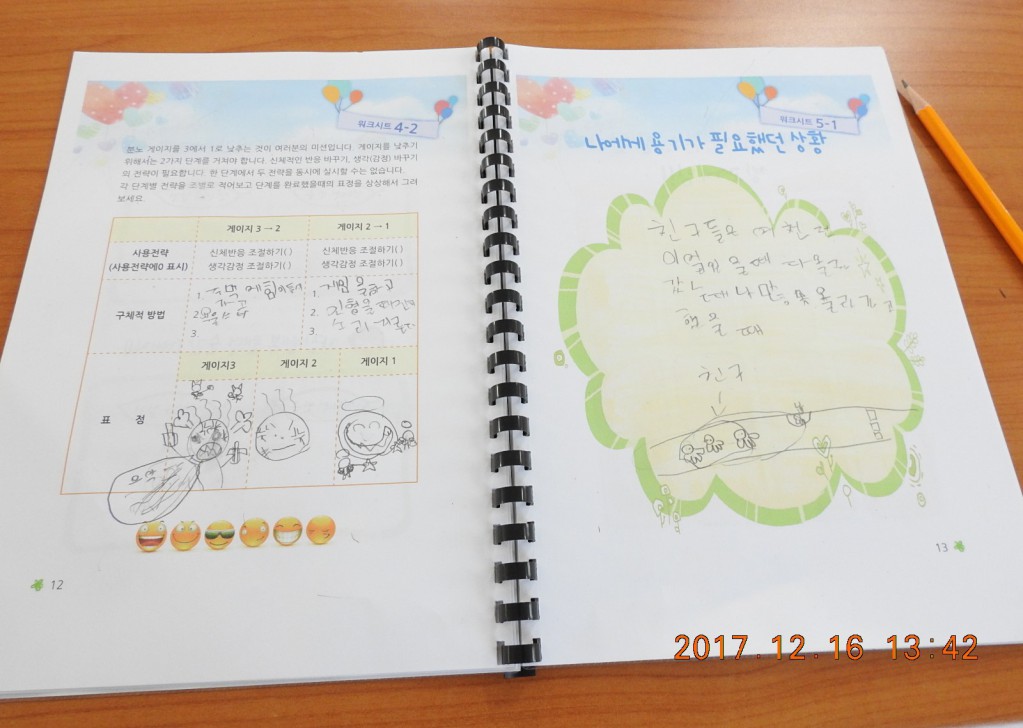 워크시트 4-2
분노 게이지를 3에서 1로 낮추는 것이 여러분의 미션입니다. 게이지를 낮추기
위해서는 2가지 단계를 거쳐야 합니다. 신체적인 반응 바꾸기, 생각(감정) 바꾸기
의 전략이 필요합니다. 한 단계에서 두 전략을 동시에 실시할 수는 없습니다.
각 단계별 전략을 조별로 적어보고 단계를 완료했을때의 표정을 상상해서 그려
보세요.
게이지 3 → 2
게이지 2 → 1
사용전략
(사용전략에O 표시)
신체반응 조절하기( )
생각감정 조절하기( )
신체반응 조절하기( )
생각감정 조절하기( )
구체적 방법
1.
2.
3
1. 게임을하고
2. 인형을
3. 소리
게이지3
게이지 2
게이지 1
표 정
12
워크시트 5-1
나에게 용기가 필요했던 상황
친구들
때 나만 못 올라간고
했을 때
친구
13
2017.12.16 13:42